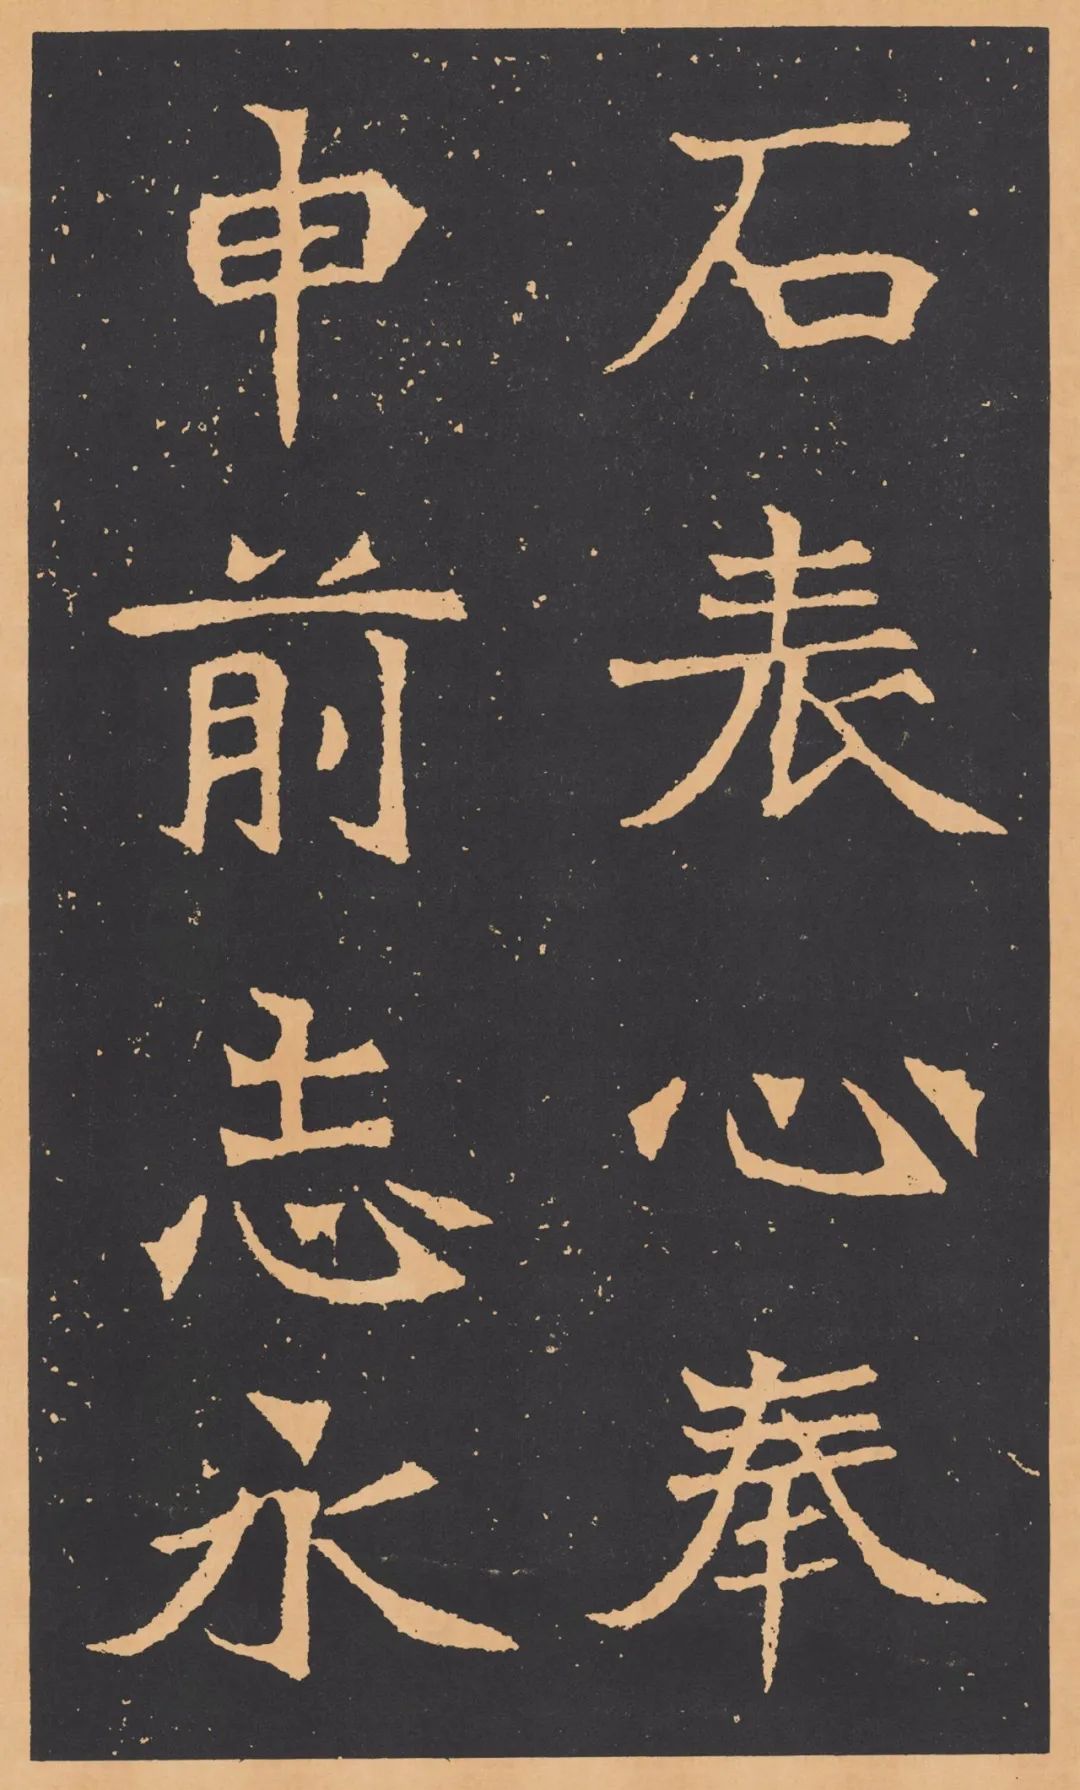 石表心奉
申前志永